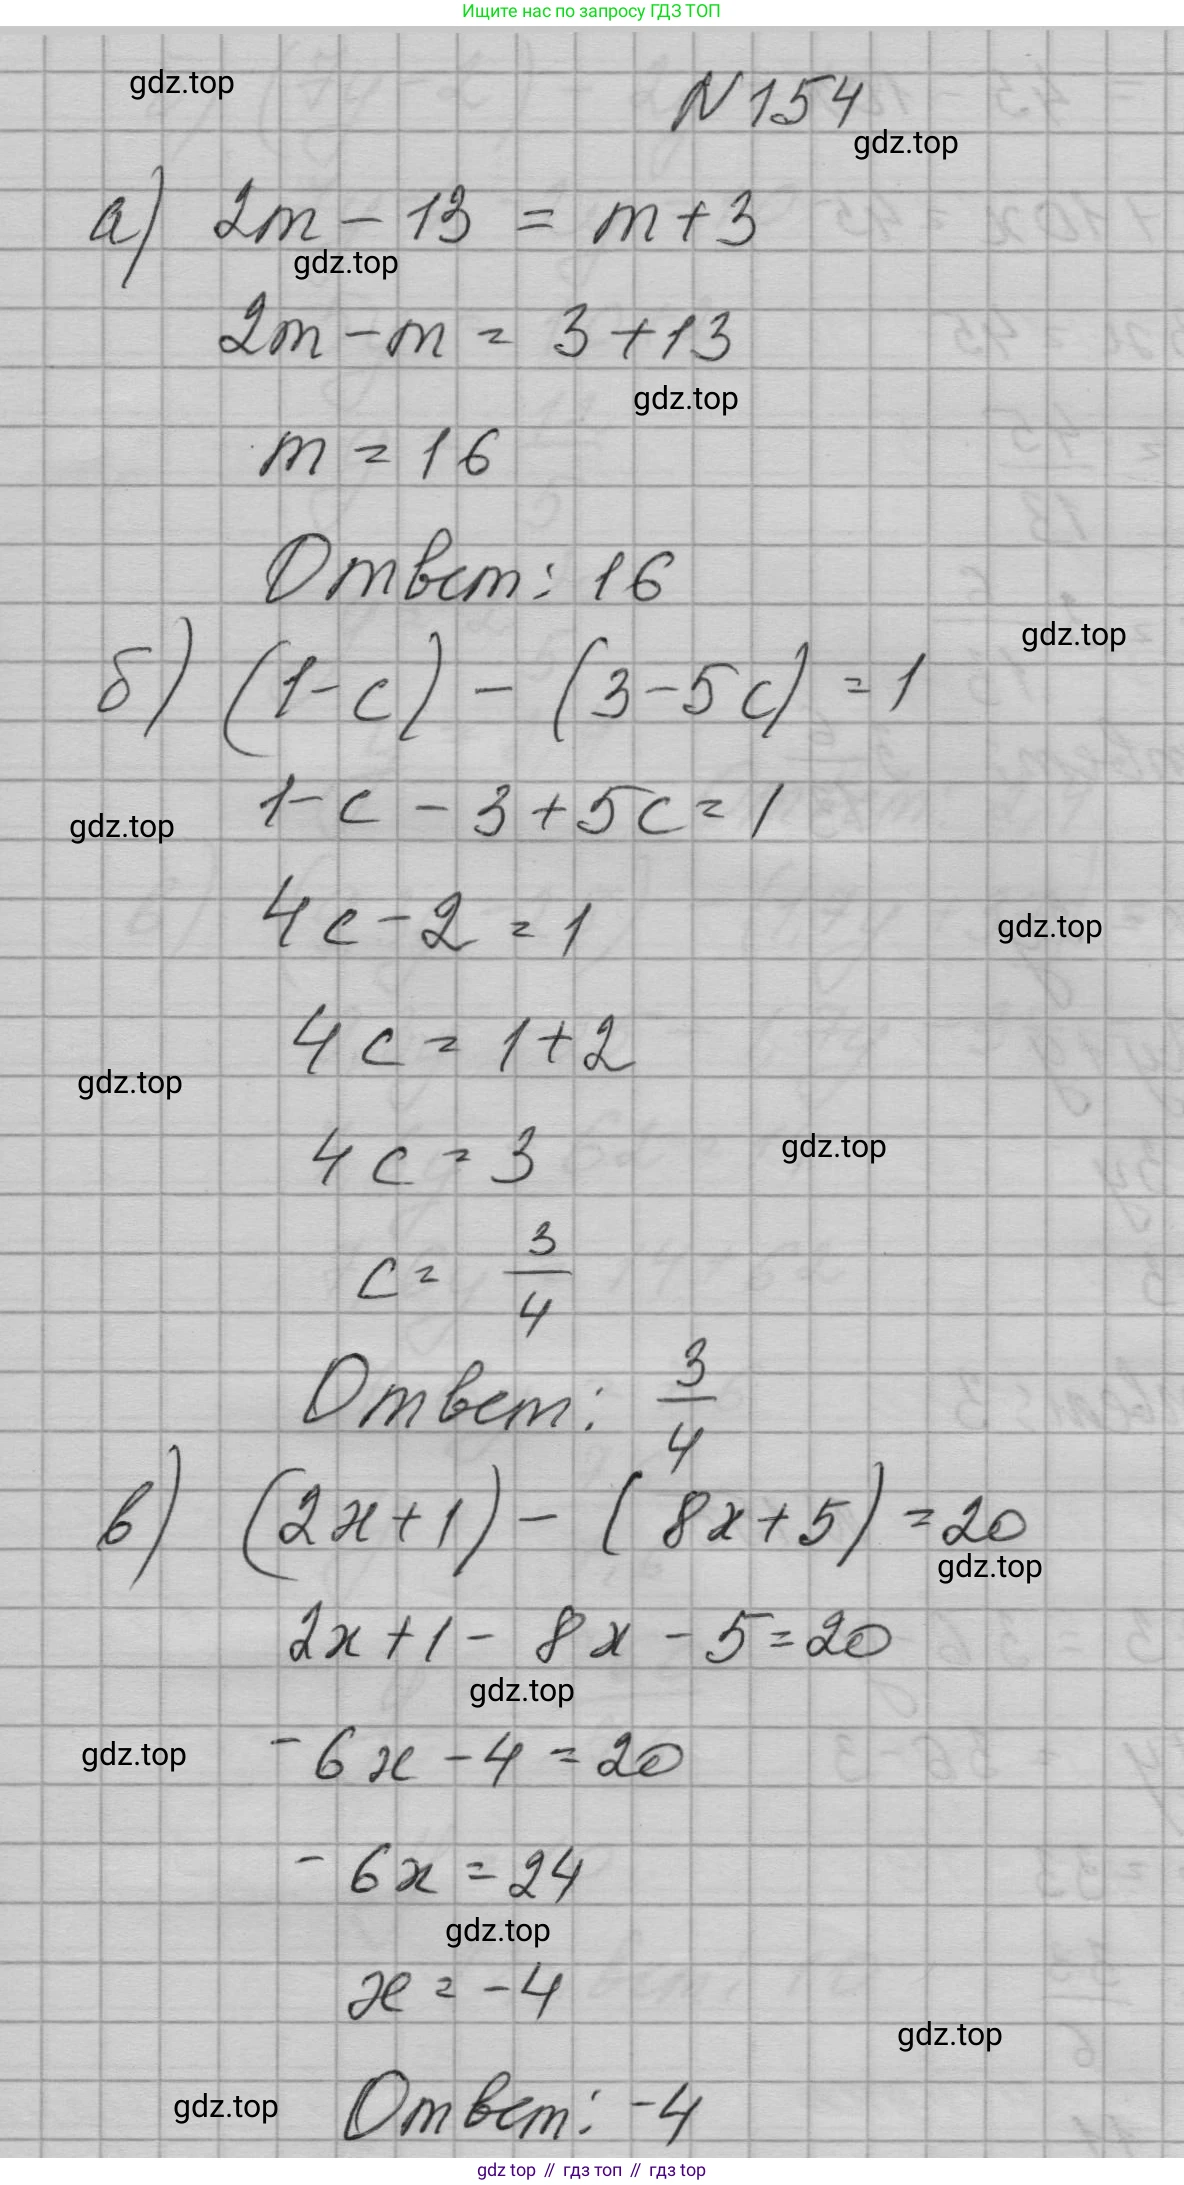 Ищите нас по запросу ГДЗ ТОП
gdz.top
N 154
gdz.top
а) 2m - 13 = m + 3
gdz.top
2m - m = 3 + 13
gdz.top
m = 16
Ответ: 16
gdz.top
б) (1 - c) - (3 - 5c) = 1
1 - c - 3 + 5c = 1
gdz.top
4c - 2 = 1
gdz.top
4c = 1 + 2
gdz.top
4c = 3
gdz.top
c = 3/4
Ответ: 3/4
в) (2x + 1) - (8x + 5) = 20
gdz.top
2x + 1 - 8x - 5 = 20
gdz.top
gdz.top
-6x - 4 = 20
-6x = 24
gdz.top
x = -4
gdz.top
gdz.top
Ответ: -4
gdz top // гдз топ // гдз top